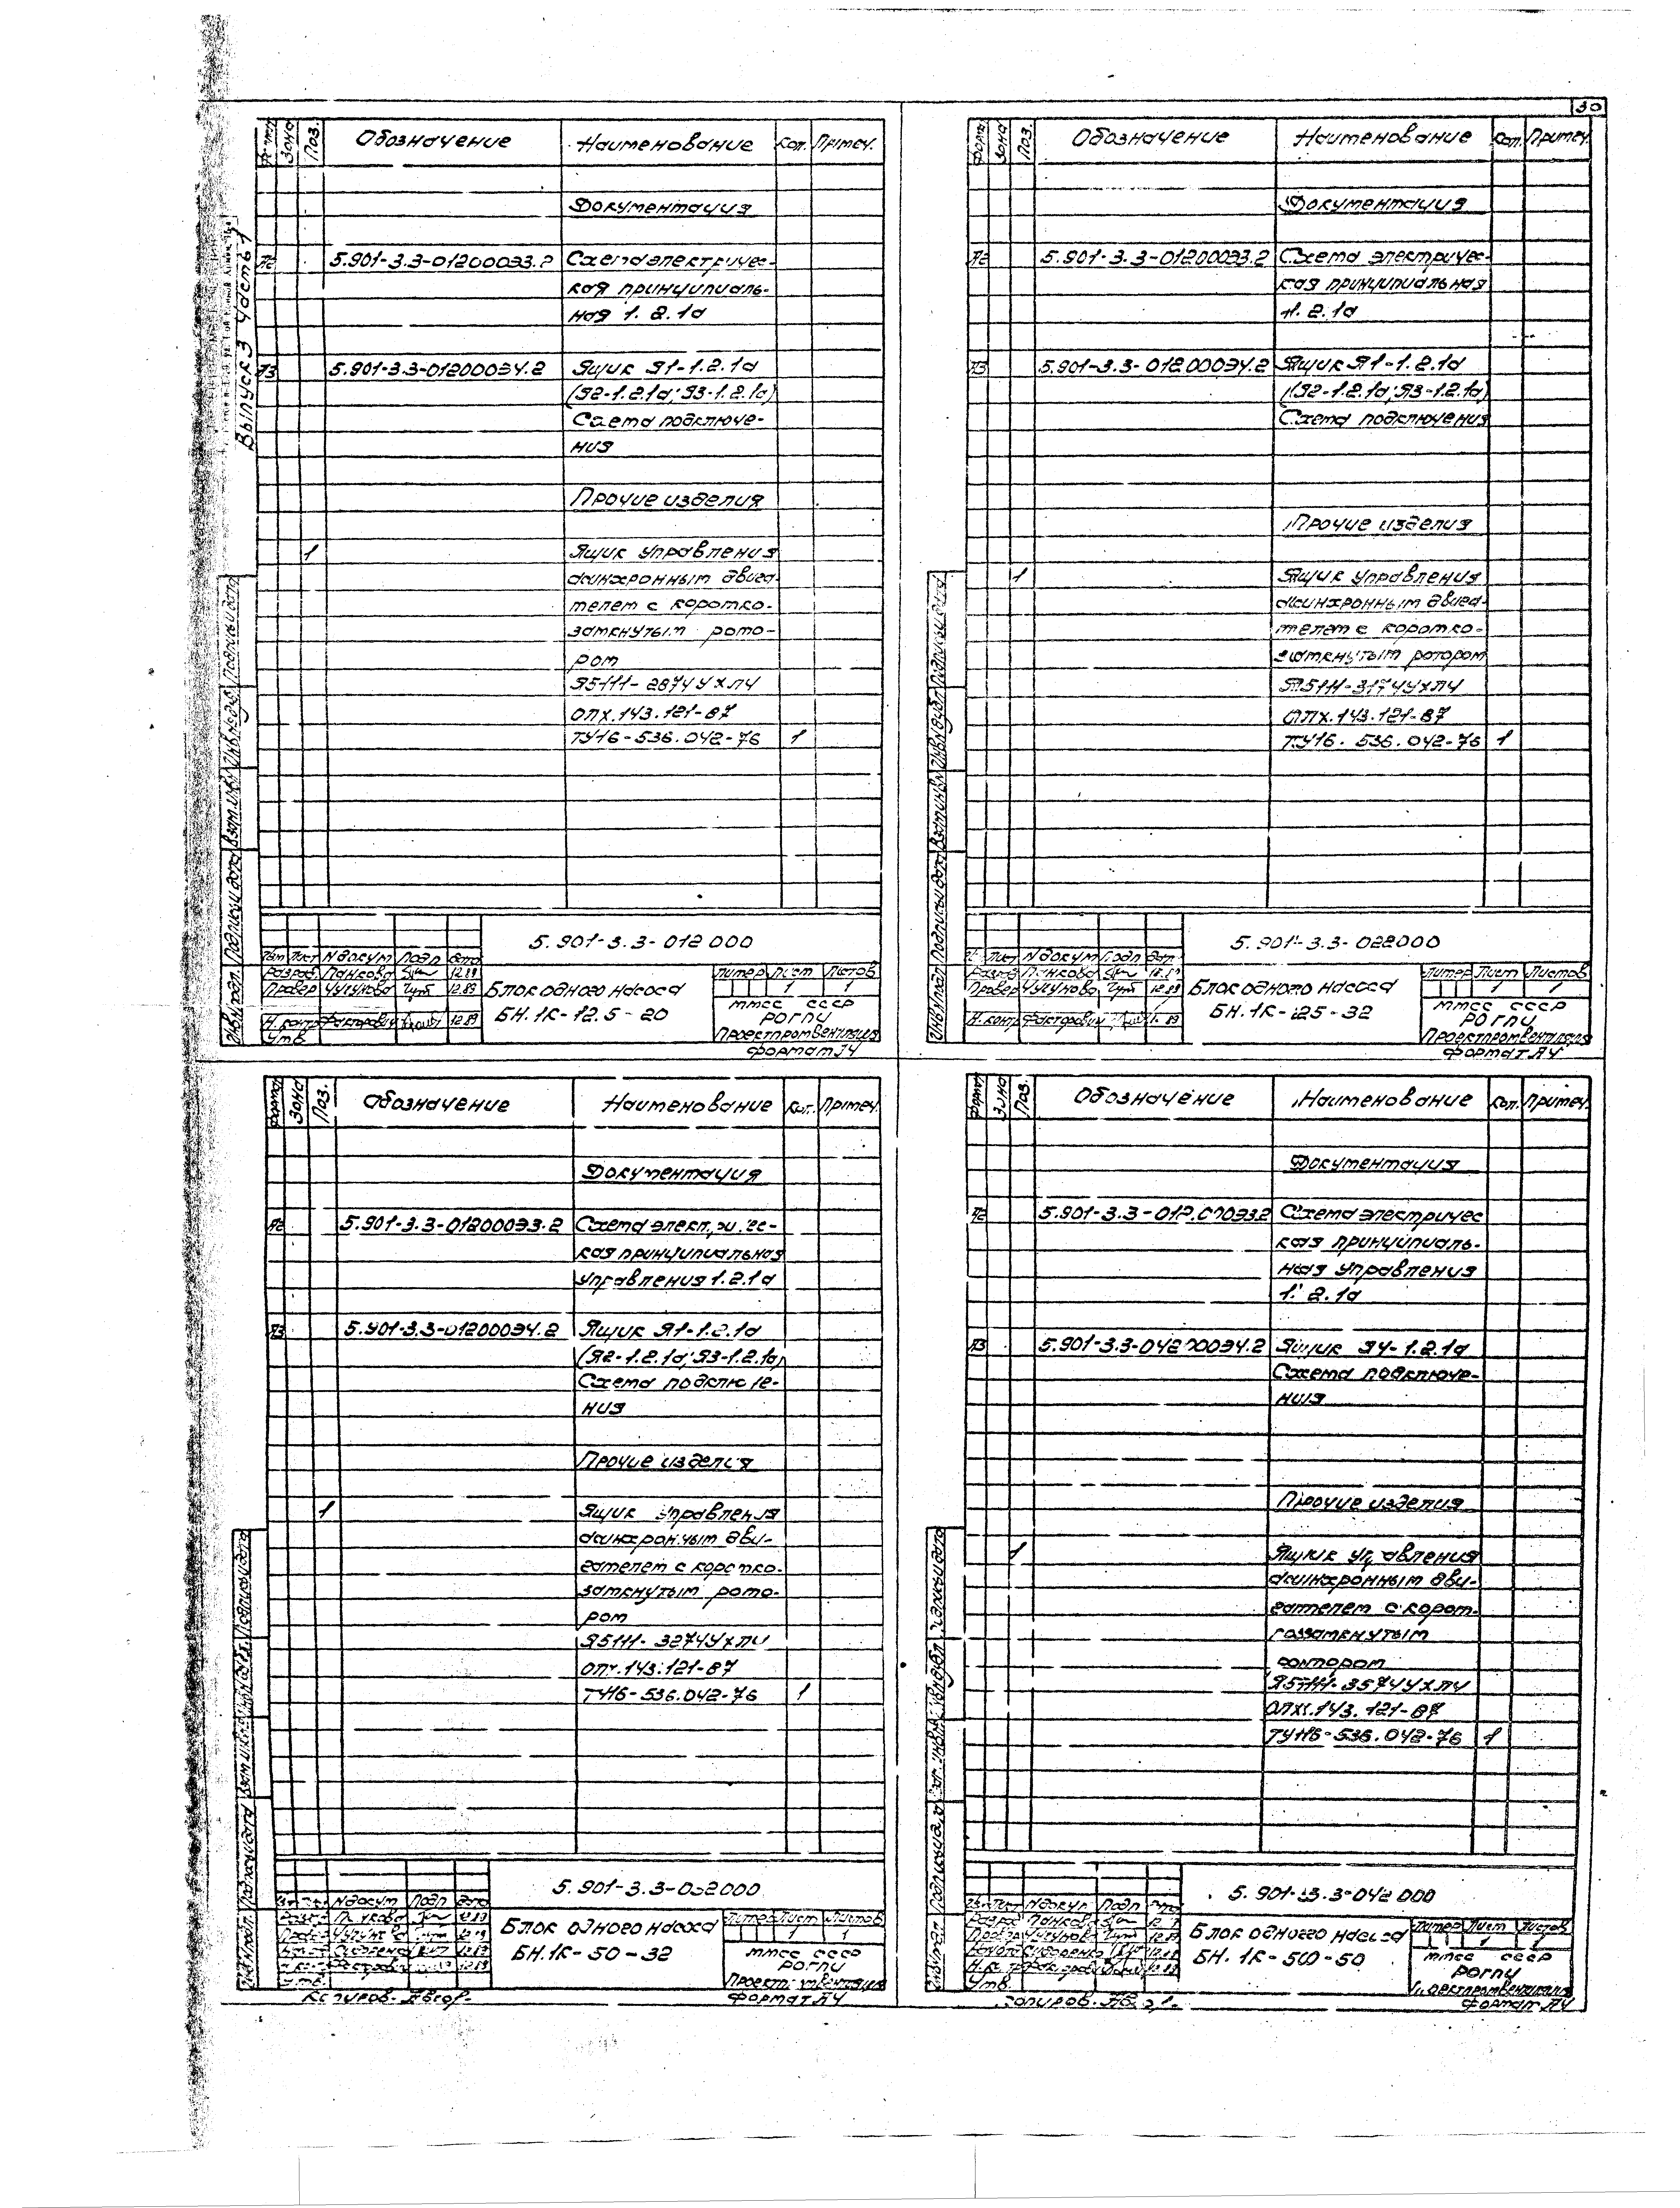 30
Выпуск 3 Часть 1
Зона Поз. Обозначение Наименование Кол. Примеч.
Документация
А2 5.901-3.3-012000Э3.2 Схема электричес-
кая принципиаль-
ная 1.2.1а
А3 5.901-3.3-012000Э4.2 Ящик Я1-1.2.1а
(Я2-1.2.1а; Я3-1.2.1а)
Схема подключе-
ния
Прочие изделия
1 Ящик управления
асинхронным двига-
телем с коротко-
замкнутым рото-
ром
Я5111-2874УХЛ4
ОЛХ.143.121-87
ТУ16-536.042-76 1
5.901-3.3-012000
Изм Лист N докум Подп Дата
Разраб. Панкова 12.89
Провер Чугунова 12.89
Н.контр Факторович 12.89
Утв.
Блок одного насоса
БН.1К-12.5-20
Литер Лист Листов
1 1
ММСС СССР
РОГПИ
Проектпромвентиляция
Формат А4
Инв.N подл. Подпись и дата Взам.инв.N Инв.N дубл. Подпись и дата
Формат Зона Поз. Обозначение Наименование Кол. Примеч.
Документация
А2 5.901-3.3-012000Э3.2 Схема электричес-
кая принципиальная
1.2.1а
А3 5.901-3.3-012000Э4.2 Ящик Я1-1.2.1а
(Я2-1.2.1а; Я3-1.2.1а)
Схема подключения
Прочие изделия
1 Ящик управления
асинхронным двига-
телем с коротко-
замкнутым ротором
Я5111-3174УХЛ4
ОЛХ.143.121-87
ТУ16-536.042-76 1
5.901-3.3-022000
Лист N докум Подп Дат.
Разраб Панкова
Провер Чугунова 12.89
Н.контр Факторович
Блок одного насоса
БН.1К-125-32
Литер Лист Листов
1 1
ММСС СССР
РОГПИ
Проектпромвентиляция
Формат А4
Инв.N подл Подпись и дата Взам.инв.N Инв.N дубл Подпись и дата
Формат Зона Поз. Обозначение Наименование Кол. Примеч.
Документация
А2 5.901-3.3-012000Э3.2 Схема электричес-
кая принципиальная
управления 1.2.1а
А3 5.901-3.3-012000Э4.2 Ящик Я1-1.2.1а
(Я2-1.2.1а; Я3-1.2.1а)
Схема подключе-
ния
Прочие изделия
1 Ящик управления
асинхронным дви-
гателем с коротко-
замкнутым рото-
ром
Я5111-3274УХЛ4
ОЛХ.143.121-87
ТУ16-536.042-76 1
5.901-3.3-032000
N докум Подп Дата
Панкова 12.89
Чугунова 12.89
Сидоренко 12.89
Факторович 12.89
Утв.
Блок одного насоса
БН.1К-50-32
Литер Лист Листов
1 1
ММСС СССР
РОГПИ
Проектпромвентиляция
Копиров.
Формат А4
Формат Зона Поз. Обозначение Наименование Кол. Примеч.
Документация
А2 5.901-3.3-012000Э3.2 Схема электричес
кая принципиаль-
ная управления
1.2.1а
А3 5.901-3.3-042000Э4.2 Ящик Я4-1.2.1а
Схема подключе-
ния
Прочие изделия
1 Ящик управления
асинхронным дви-
гателем с корот-
козамкнутым
ротором
Я5111-3574УХЛ4
ОЛХ.143.121-87
ТУ16-536.042-76 1
5.901-3.3-042000
Изм Лист N докум Подп
Разраб Панкова
Провер Чугунова
Сидоренко 12.89
Н.контр Факторович 12.89
Утв
Блок одного насоса
БН.1К-500-50
Литер Лист Листов
1 1
ММСС СССР
РОГПИ
Проектпромвентиляция
Копиров.
Формат А4